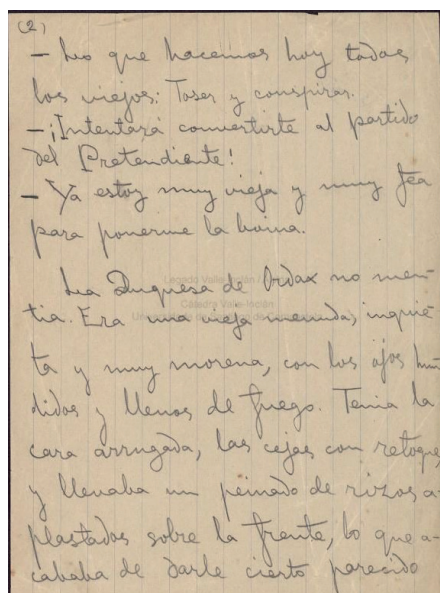 (2)
— Lo que hacemos hoy todos
los viejos: Toser y conspirar.
— ¡Intentará convertirte al partido
del Pretendiente!
— Ya estoy muy vieja y muy fea
para ponerme la boina.
La Duquesa de Ordax no men-
tia. Era una vieja menuda, inquie-
ta y muy morena, con los ojos hun
didos y llenos de fuego. Tenia la
cara arrugada, las cejas con retoque,
y llevaba un peinado de rizos a-
plastados sobre la frente, lo que a-
cababa de darle cierto parecido
Legado Valle-Inclán
Cátedra Valle-Inclán